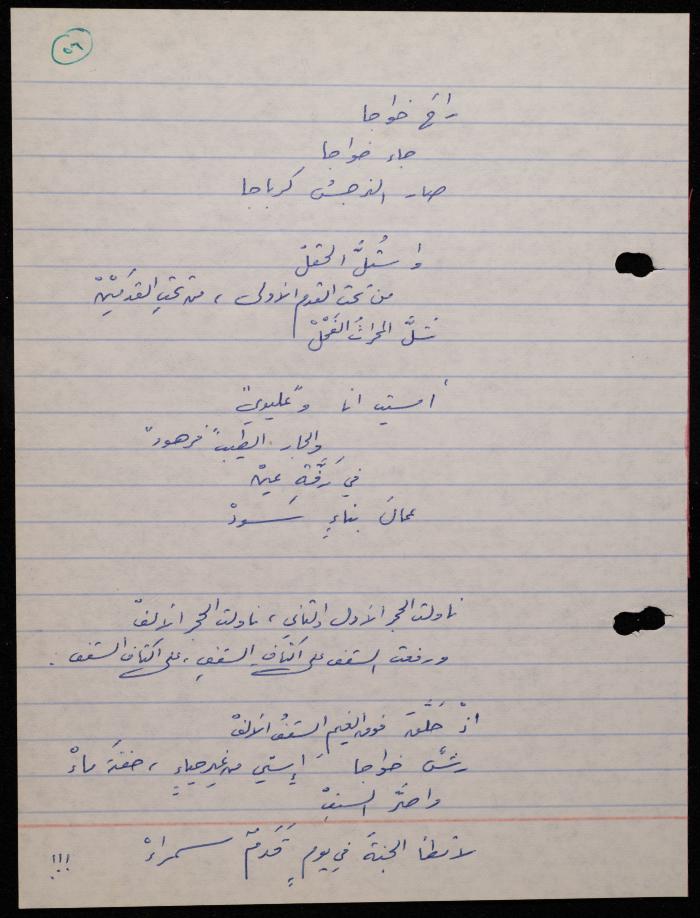 ٥٦
راحَ خواجا
جاء خواجا
صار النرجسُ كرباجا
وانشُلَّ الحقلْ
من تحت القدم الأولى ، من تحتِ القدمَيْنْ
شُلَّ المحراثُ الفَحْلْ
أمسيت انا و"عليوي"
والجار الطيب "فرهود"
في رَفَّةِ عينْ
عمالَ بناءٍ سودْ
ناولت الحجر الأول والثاني ، ناولت الحجر الألفْ
ورفعت السقف على أكتاف السقفِ ، على أكتاف السقف .
إذْ حَلَّقَ فوق الغيم السقفُ الألفْ
رشَّ خواجا إستي من غير حياءٍ ، حفنَةَ ماءْ
واصرَّ السنفْ
لا تطأ الجنةَ في يومٍ قَدَمٌ سمراءْ !!!